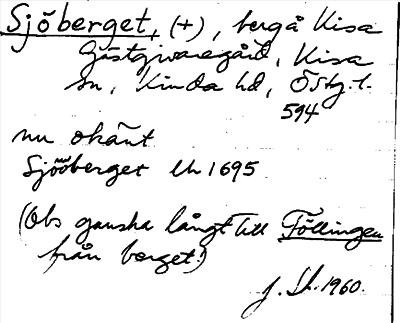 Sjöberget, (+), berg å Kisa
Gästgivaregård, Kisa
sn, Kinda hd, Östg. l.
594
nu okänt
Sjööberget Lh 1695
(Obs ganska långt till Föllingen
från berget!)
J. Sh. 1960.